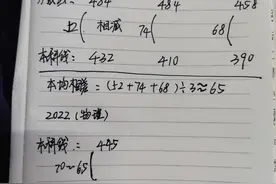 484 484 458
52( 相减 74( 68(
本科线: 432 410 390
本均相差: (52+74+68)÷3≈65
2022 (物理)
本科线: 445
70≈65(